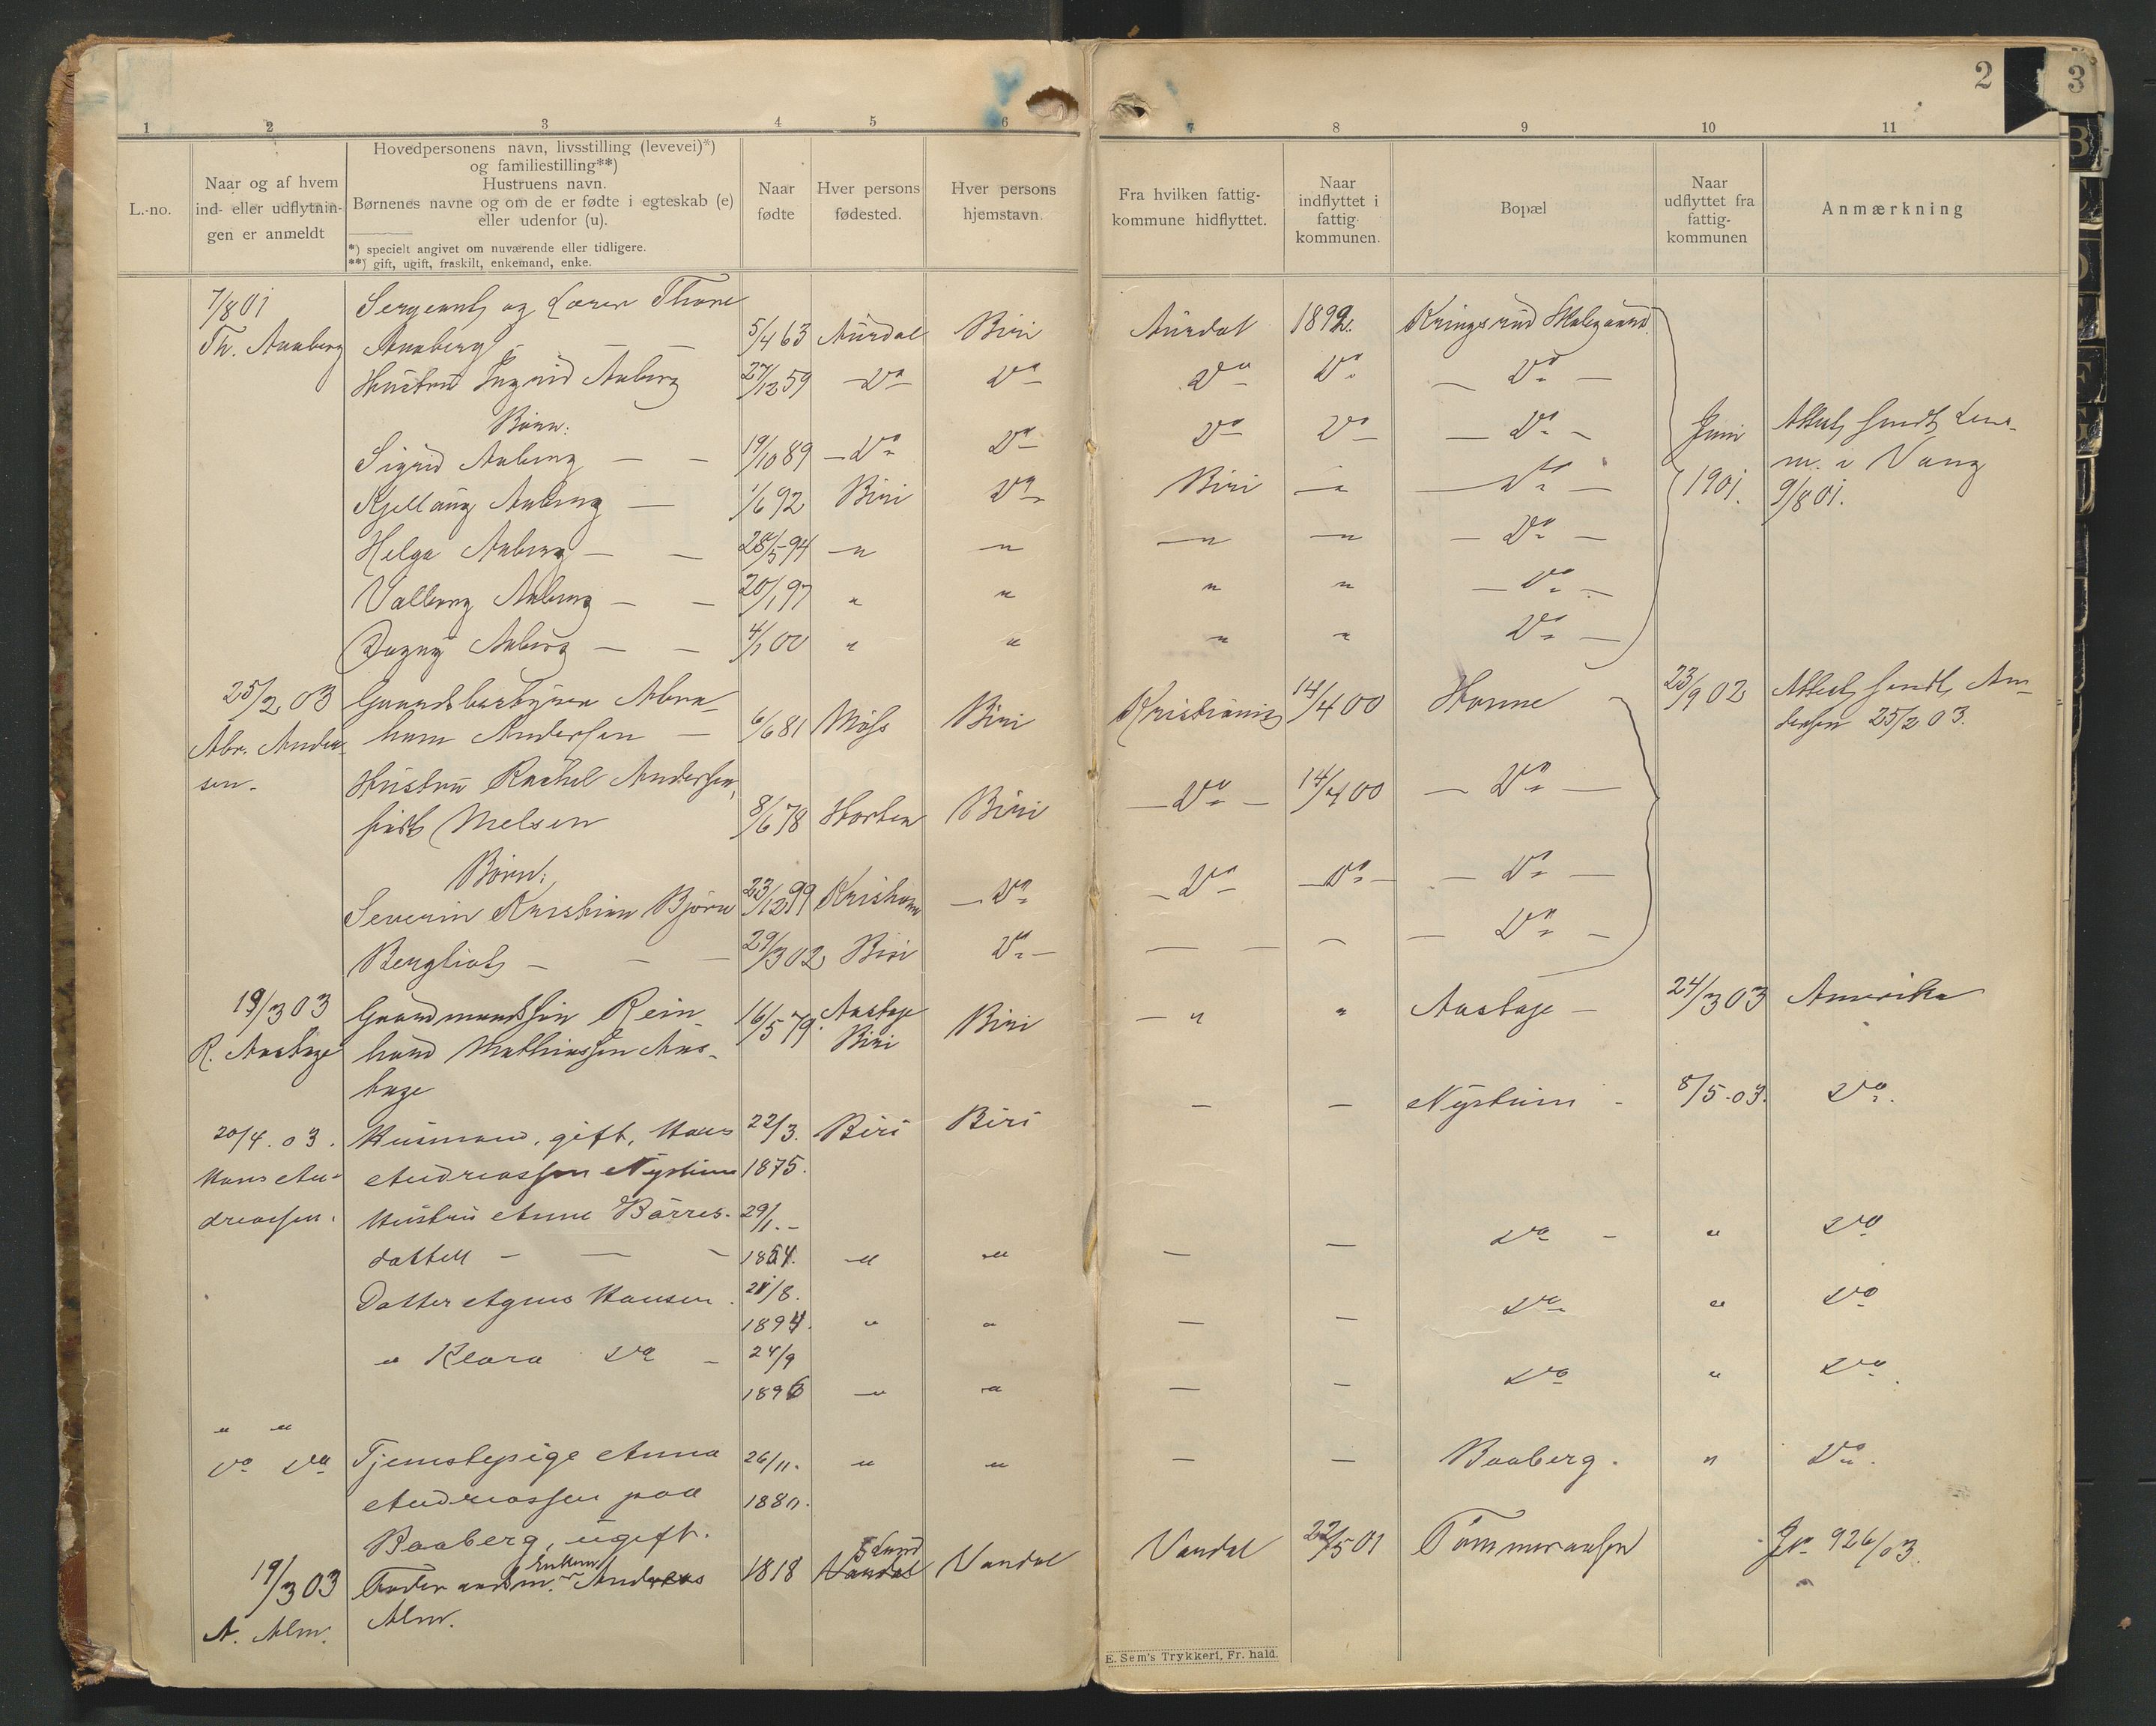 2 3
1 2 3 4 5 6 7 8 9 10 11
L.-no.
Naar og af hvem
ind- eller udflytnin-
gen er anmeldt
Hovedpersonens navn, livsstilling (levevei)*)
og familiestilling**)
Hustruens navn.
Børnenes navne og om de er fødte i egteskab (e)
eller udenfor (u).
*) specielt angivet om nuværende eller tidligere.
**) gift, ugift, fraskilt, enkemand, enke.
Naar
fødte
Hver persons
fødested.
Hver persons
hjemstavn.
Fra hvilken fattig-
kommune hidflyttet.
Naar
indflyttet i
fattig-
kommunen.
Bopæl
Naar
udflyttet fra
fattig-
kommunen
Anmærkning
7/8 01 Sergeant og Lærer Thore
Th. Aaberg Aaberg — — 5/4 63 Aurdal Biri Aurdal 1892. Kringsrud
Hustru Ingrid Aaberg 27/12 59 — Do — Do Do Do — Do —
Børn:
Sigrid Aaberg — — 19/10 89 — Do Do Do Do — Do — Juni Attest sendt Lens-
m. i Vang
Kjellaug Aaberg — 1/6 92 Biri Do Biri — " — Do — 1901. 9/8 01.
Helga Aaberg — — 28/5 94 — " — " — " — " — Do —
Valborg Aaberg — — 20/1 97 " " " " — Do —
Dagny Aaberg — — 4/1 00 " " " " Do —
25/2 03 Gaardsbestyrer Abra-
Abr. Ander- ham Andersen — 6/6 81 Moss Biri Kristiania 14/4 00 Honne 23/9 02 Attest sendt An-
dersen 25/2 03.
sen. Hustru Rachel Andersen,
født Melsen 8/6 78 Horten Biri — Do — 14/4 00 — Do —
Børn:
Severin Kristian Bjørn 23/12 99 Kristiania — Do — Do — Do — — Do —
Bergliot — — — 29/3 02 Biri Do — — — — — Do —
19/3 03 Gaardmandssøn Rein- 16/5 79. Aastage Biri — " " Aastage — 24/3 03 Amerika
R. Aastage hard Mathiassen Aas- Biri
tage
20/4. 03. Husmand, gift, Hans 22/3. Biri Biri — — Nystuen - 8/5. 03. Do.
Hans An- Andreassen Nystuen 1875.
dreassen. Hustru Anne Børres- 29/1. -
datter — — — 1854. — " — " — — Do — " Do
Datter Agnes Hansen. 21/8.
1894. " " — — Do " Do
" Klara Do — 24/9
1896 — " — " — — Do " Do.
" "
Do Do Tjenestepige Anna 26/11. — " — " — — Baaberg. " Do.
Andreassen paa 1880.
Baaberg, ugift.
19/3 03 Foderaadsm. Enkem. Andreas 1818 Lund Vardal Vardal Vardal 22/5 01 Jr 926/03.
A. Alm. Alm.
E. Sem's Trykkeri, Fr. hald.